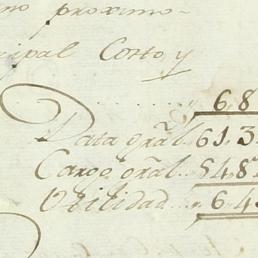 no proximo-
cipal Costo, y
6,8
Data gral. 61,3
Cargo gral. 54,8
Utilidad.. 6,4